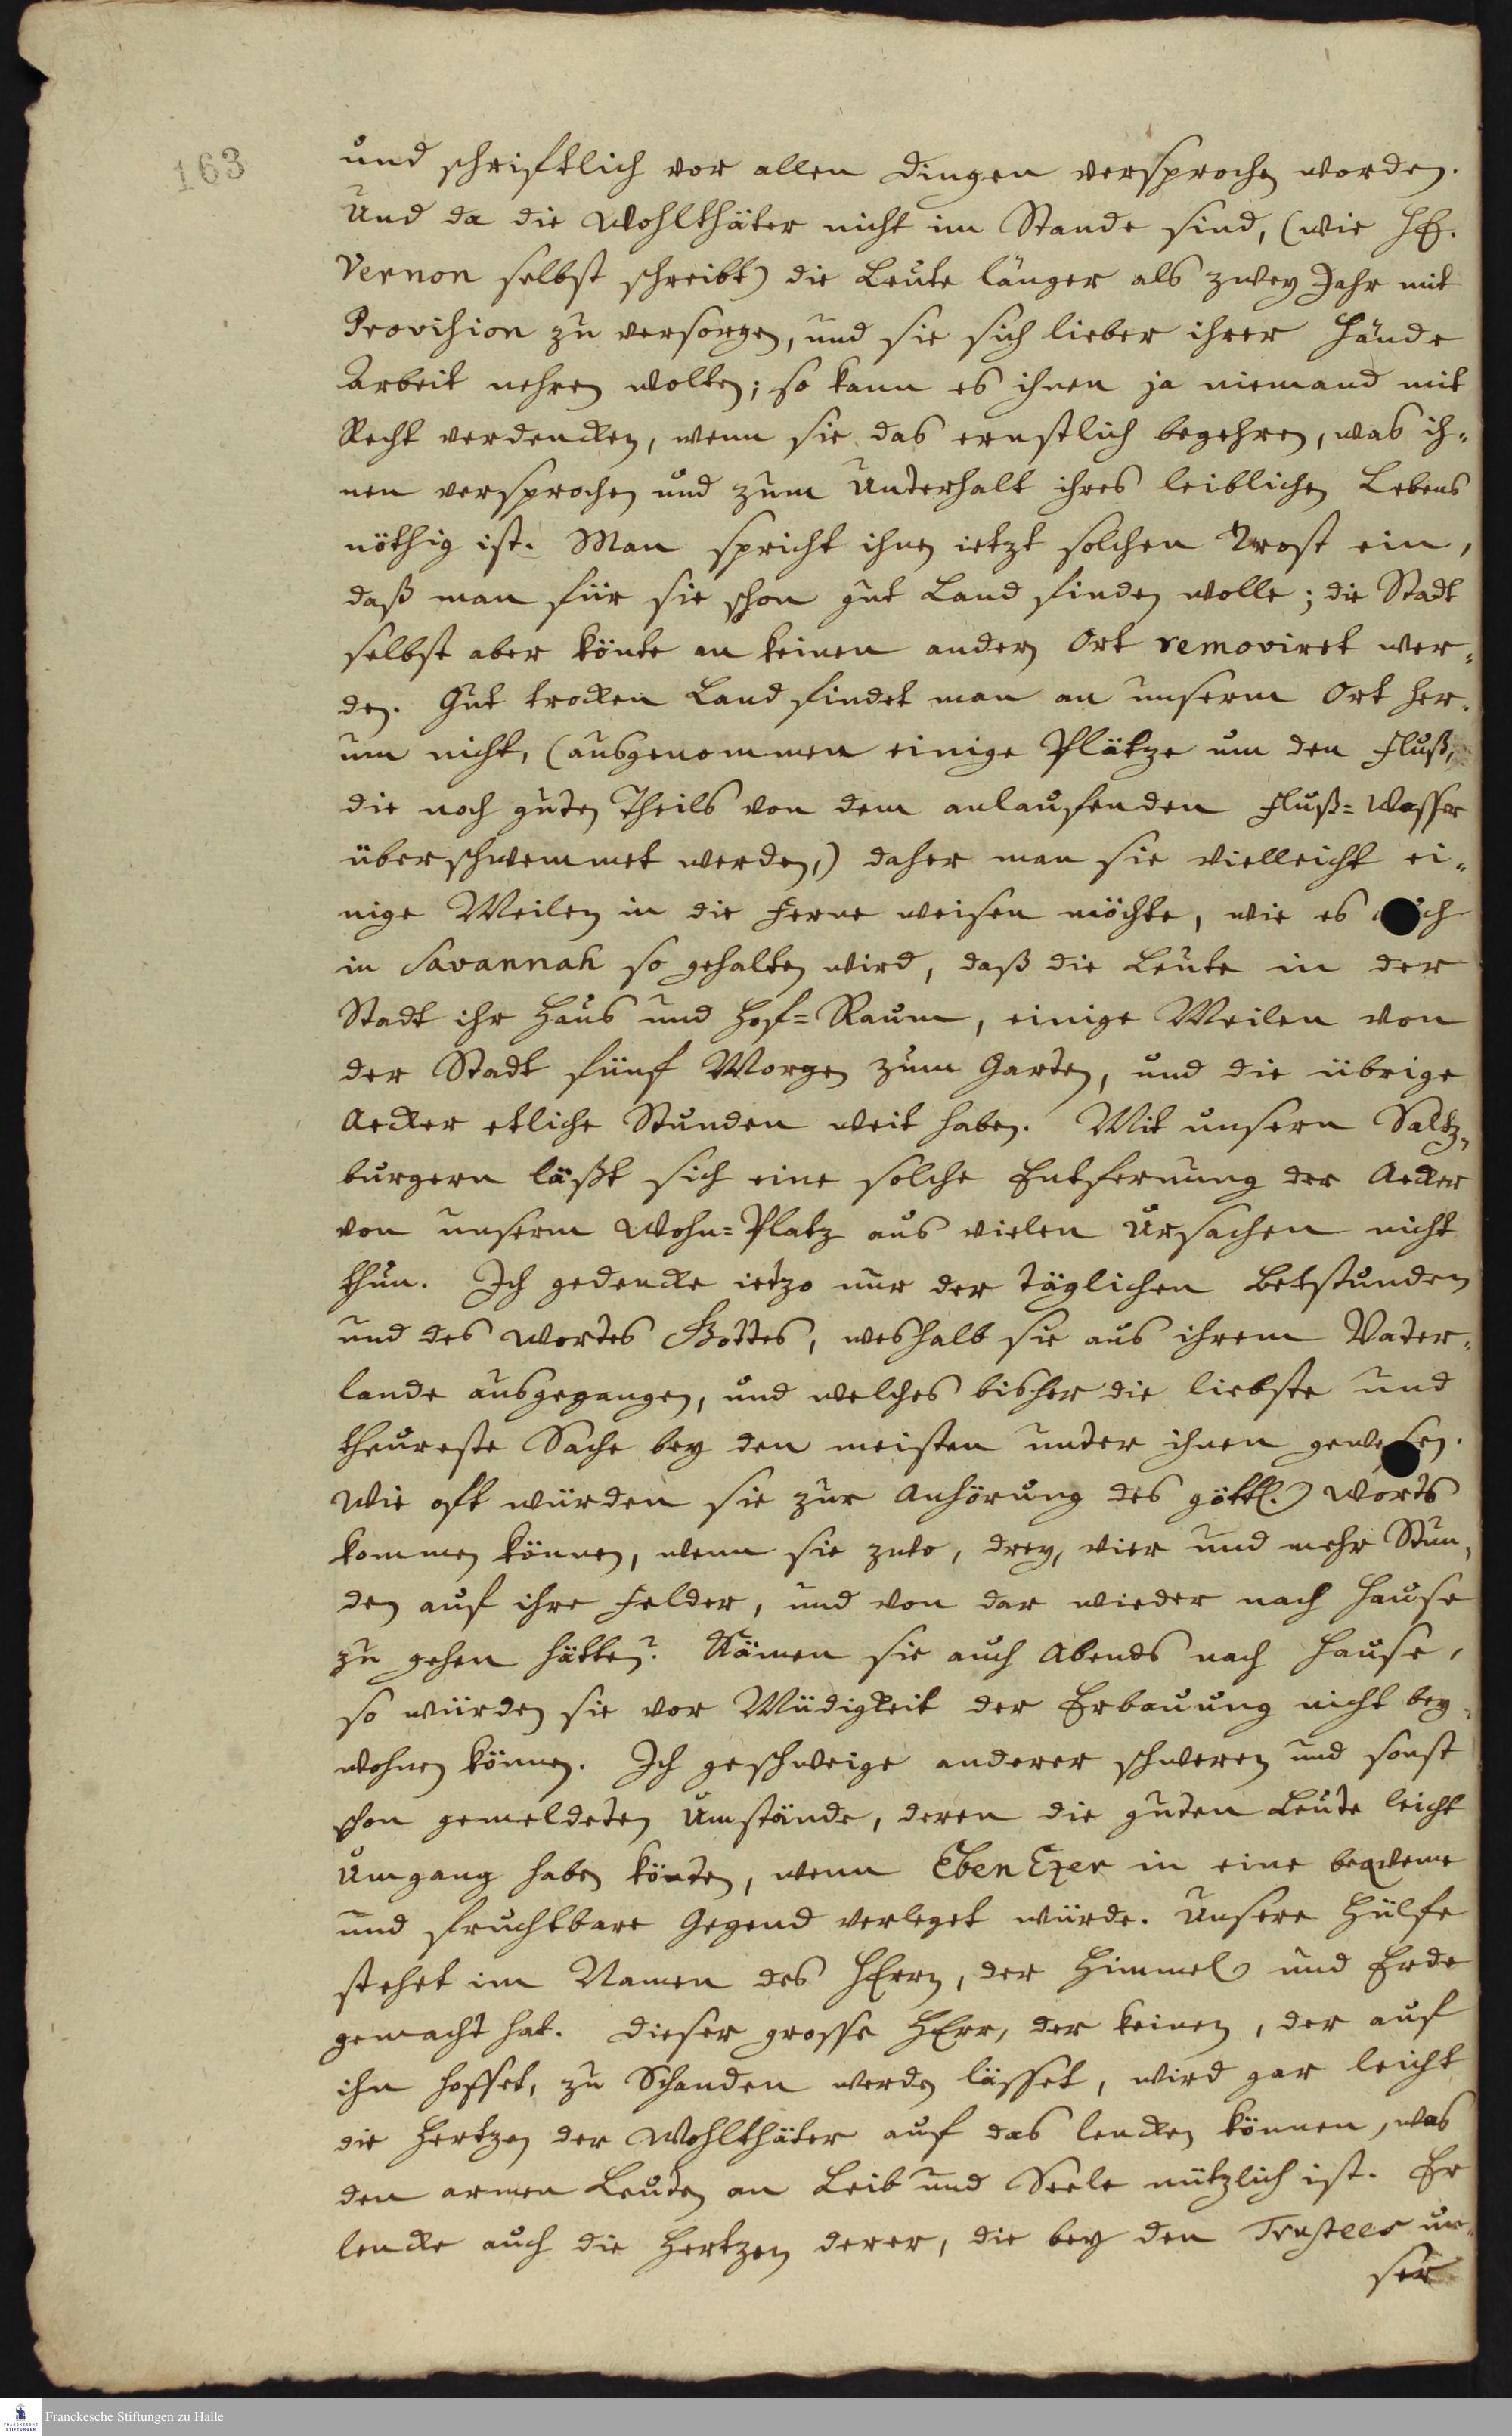 163
und schriftlich vor allen Dingen versprochen worden.
Und da die Wohlthäter nicht im Stande sind, (wie H.
Vernon selbst schreibt) die Leute länger als zwey Jahr mit
Provision zu versorgen, und sie sich lieber ihrer Hände
Arbeit nehren wolten; so kann es ihnen ja niemand mit
Recht verdencken, wenn sie das ernstlich begehren, was ih-
nen versprochen und zum Unterhalt ihres leiblichen Lebens
nöthig ist. Man spricht ihnen ietzt solchen Trost ein,
daß man für sie schon gut Land finden wolle; die Stadt
selbst aber könte an keinen andern Ort removiret wer-
den. Gut trocken Land findet man an unserm Ort her-
um nicht, (ausgenommen einige Plätze um den Fluß,
die noch guten Theils von dem anlaufenden Fluß-Wasser
überschwemmet werden,) daher man sie vielleicht ei-
nige Meilen in die Ferne weisen möchte, wie es auch
in Savannah so gehalten wird, daß die Leute in der
Stadt ihr Haus und Hof-Raum, einige Meilen von
der Stadt fünf Morgen zum Garten, und die übrige
Aecker etliche Stunden weit haben. Mit unsern Saltz-
burgern läßt sich eine solche Entfernung der Aecker
von unserm Wohn-Platz aus vielen Ursachen nicht
thun. Ich gedencke ietzo nur der täglichen Betstunden
und des Wortes Gottes, weshalb sie aus ihrem Vater-
lande ausgegangen, und welches bisher die liebste und
theureste Sache bey den meisten unter ihnen gewesen.
Wie oft würden sie zur Anhörung des göttl. Worts
kommen können, wenn sie zwo, drey, vier und mehr Stun-
den auf ihre Felder, und von dar wieder nach Hause
zu gehen hätten? Kämen sie auch Abends nach Hause,
so würden sie vor Müdigkeit der Erbauung nicht bey-
wohnen können. Ich geschweige anderer schweren und sonst
schon gemeldeten Umstände, deren die guten Leute leicht
Umgang haben könten, wenn EbenEzer in eine beqveme
und fruchtbare Gegend verleget würde. Unsere Hülfe
stehet im Namen des HErrn, der Himmel und Erde
gemacht hat. Dieser grosse HErr, der keinen, der auf
ihn hoffet, zu Schanden werden lässet, wird gar leicht
die Hertzen der Wohlthäter auf das lencken können, was
den armen Leuten an Leib und Seele nützlich ist. Er
lencke auch die Hertzen derer, die bey den Trustees un-
ser
Franckesche Stiftungen zu Halle